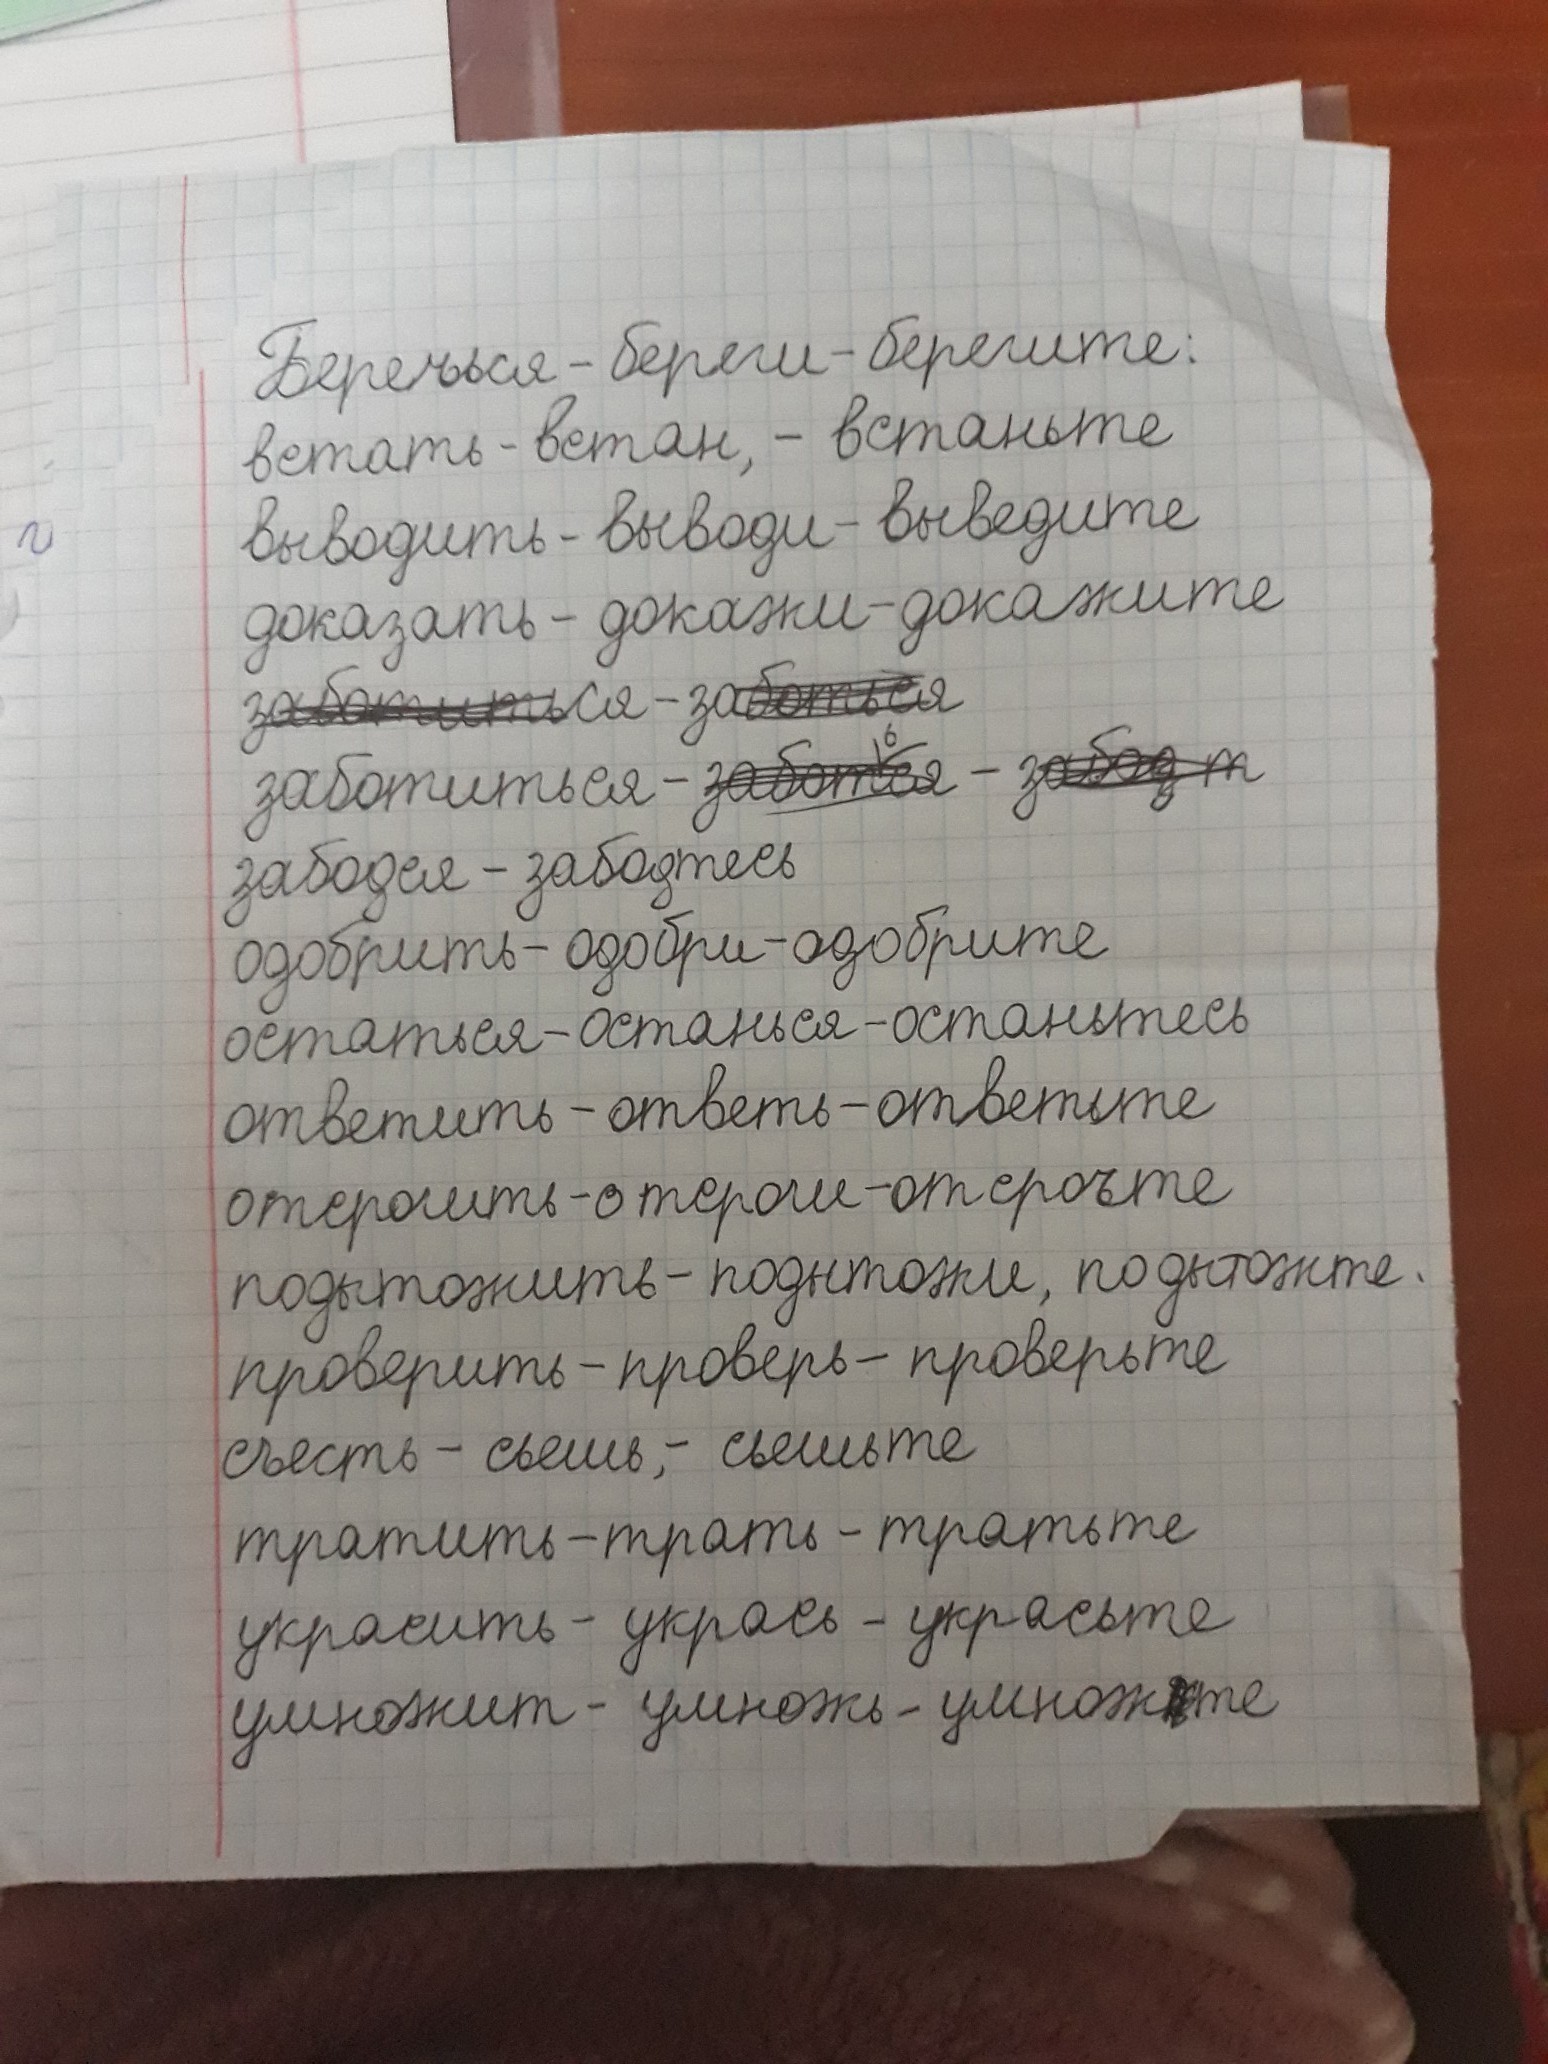 Беречься - береги - берегите:
встать - встан, - встаньте
выводить - выводи - выведите
доказать - докажи - докажите
заботиться - заботься
заботиться - заботься - забод т
забодся - забодтесь
одобрить - одобри - одобрите
остаться - останься - останьтесь
ответить - ответь - ответьте
отсрочить - отсрочи - отсрочьте
подытожить - подытожи, подытожте.
проверить - проверь - проверьте
съесть - сьешь, - сьешьте
тратить - трать - тратьте
украсить - укрась - украсьте
умножит - умножь - умножте